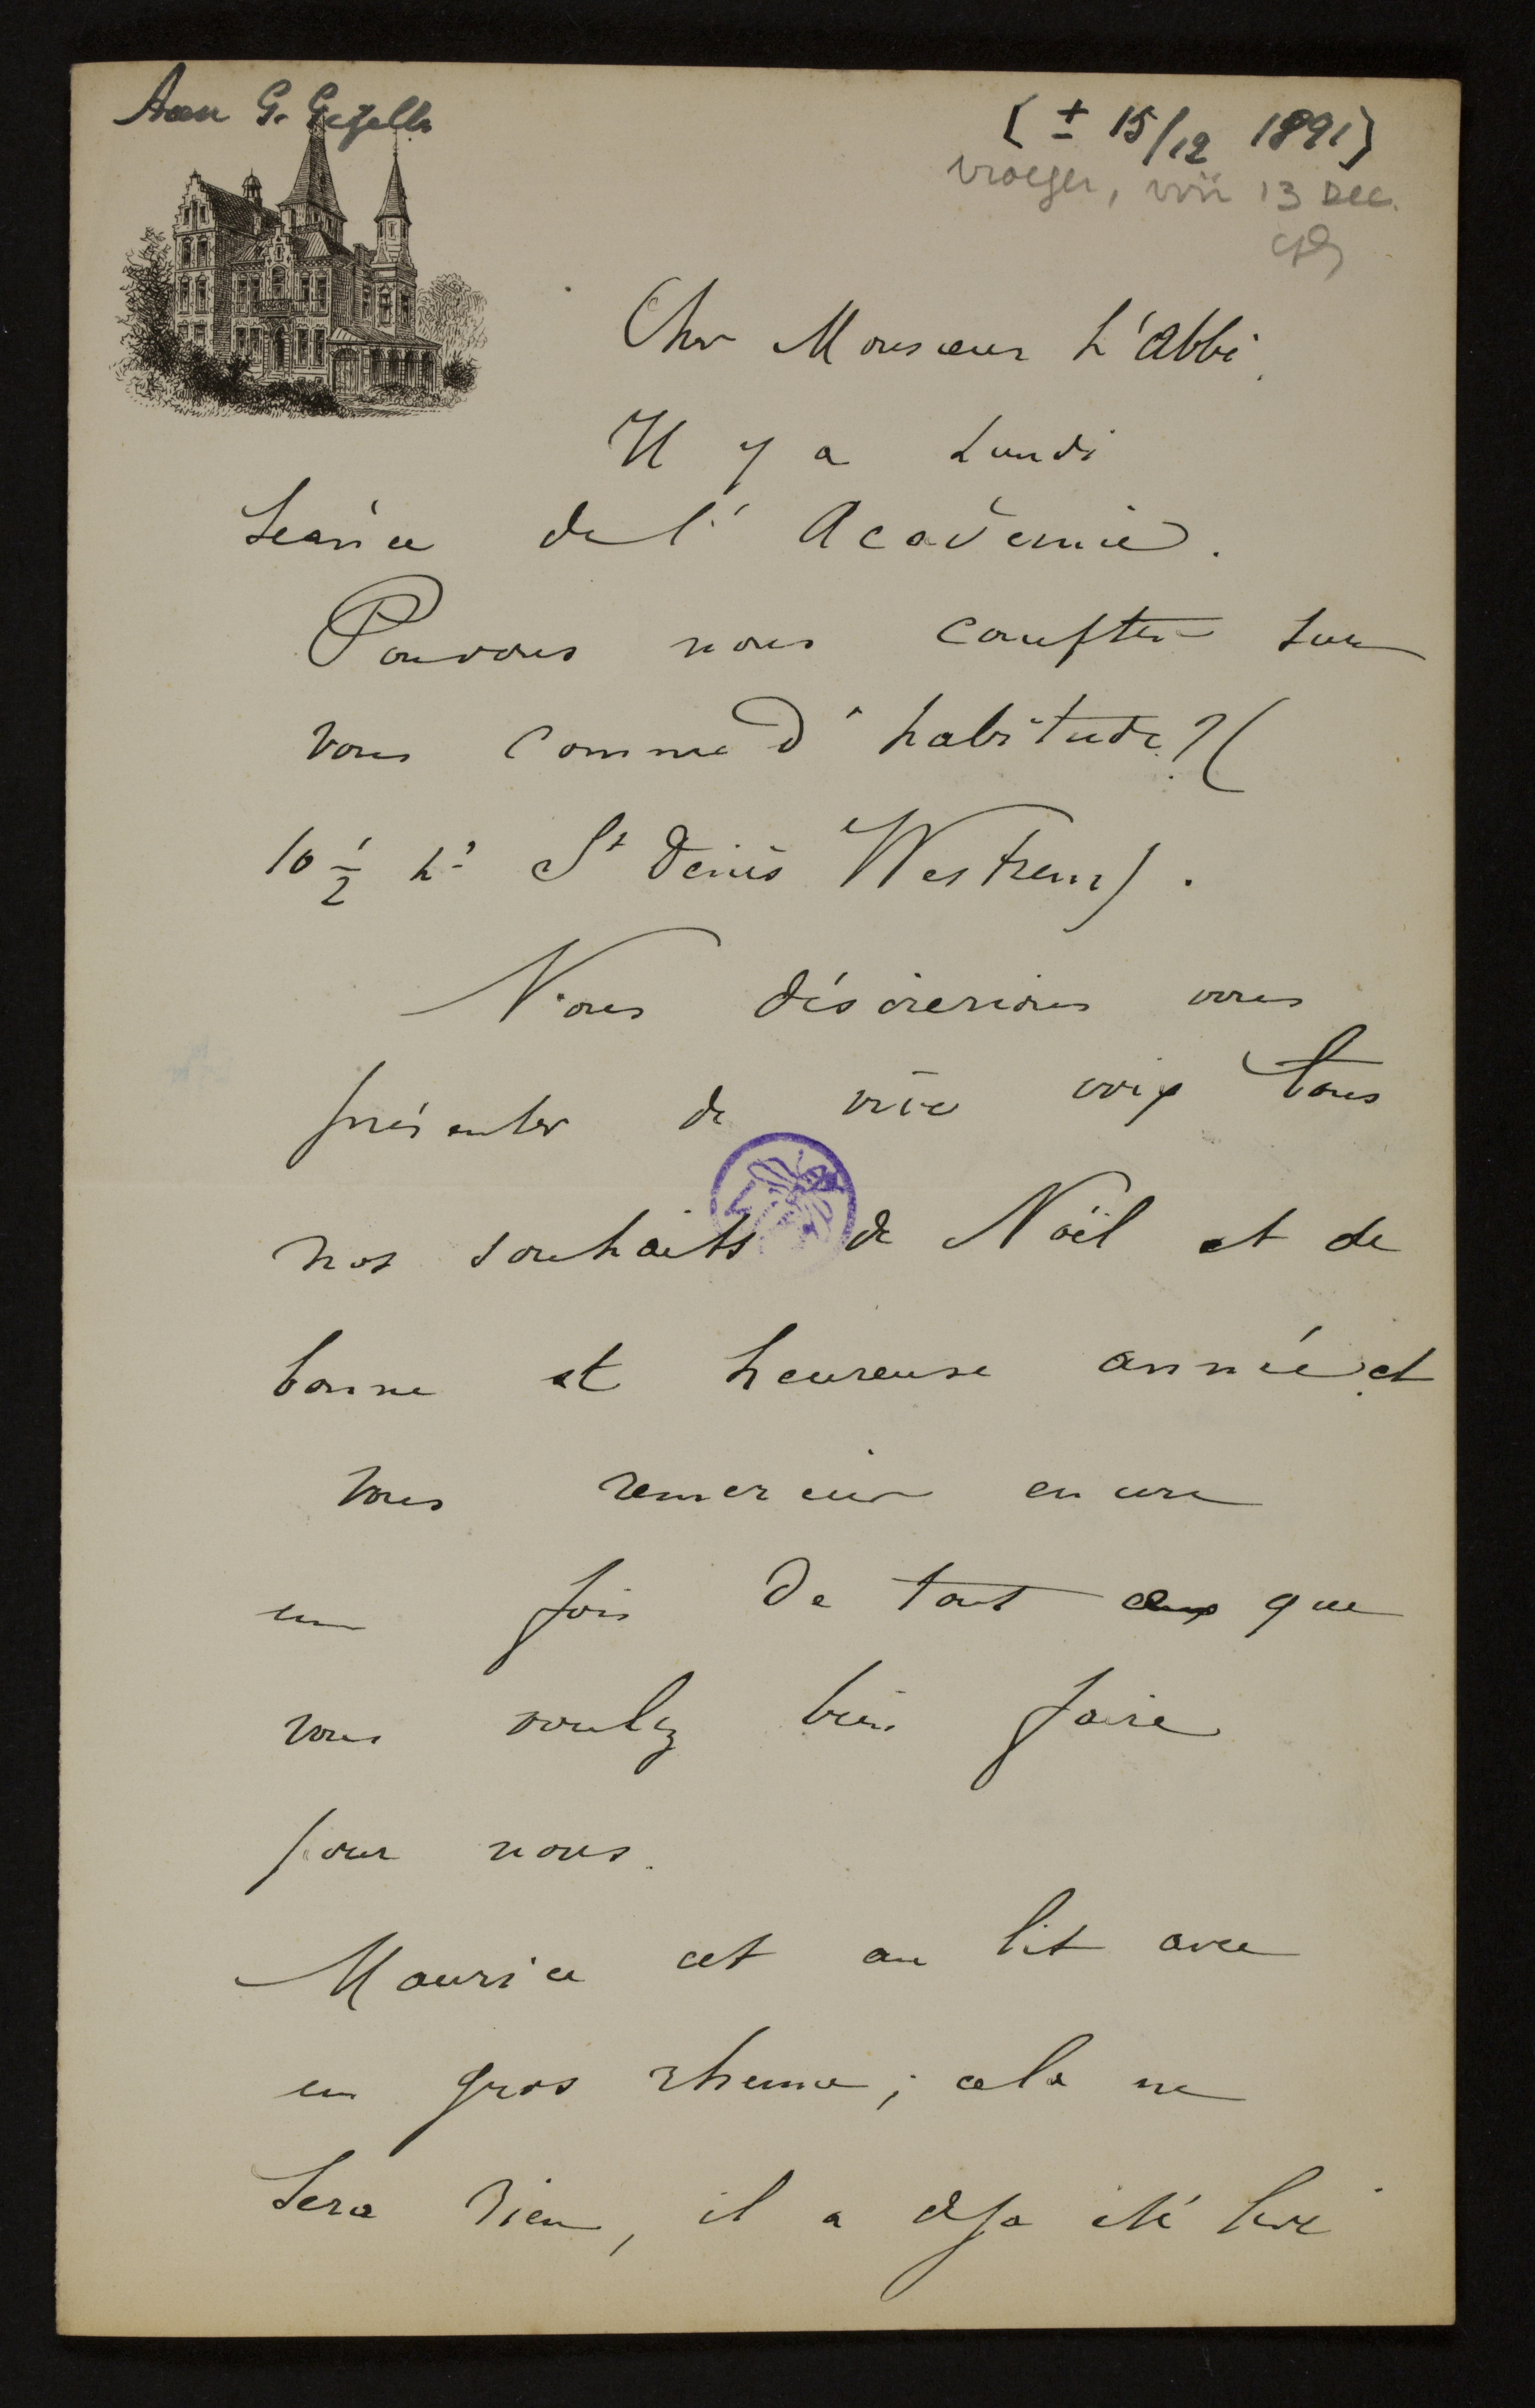 Aan G. Gezelle
[± 15/12 1891]
vroeger, vóór 13 dec.
Cher Monsieur L'Abbé.
Il y a Lundi
Séance de l'Académie.
Pouvons nous compter sur
vous comme d'habitude? (
10 1/2 h. St Denis Westrem).
Nous désirerions vous
présenter de vive voix tous
nos souhaits de Noël et de
bonne et heureuse année et
vous remercier encore
une fois de tout ce que
vous voulez bien faire
pour nous.
Maurice est au lit avec
un gros rhume; cela ne
sera rien, il a déja été